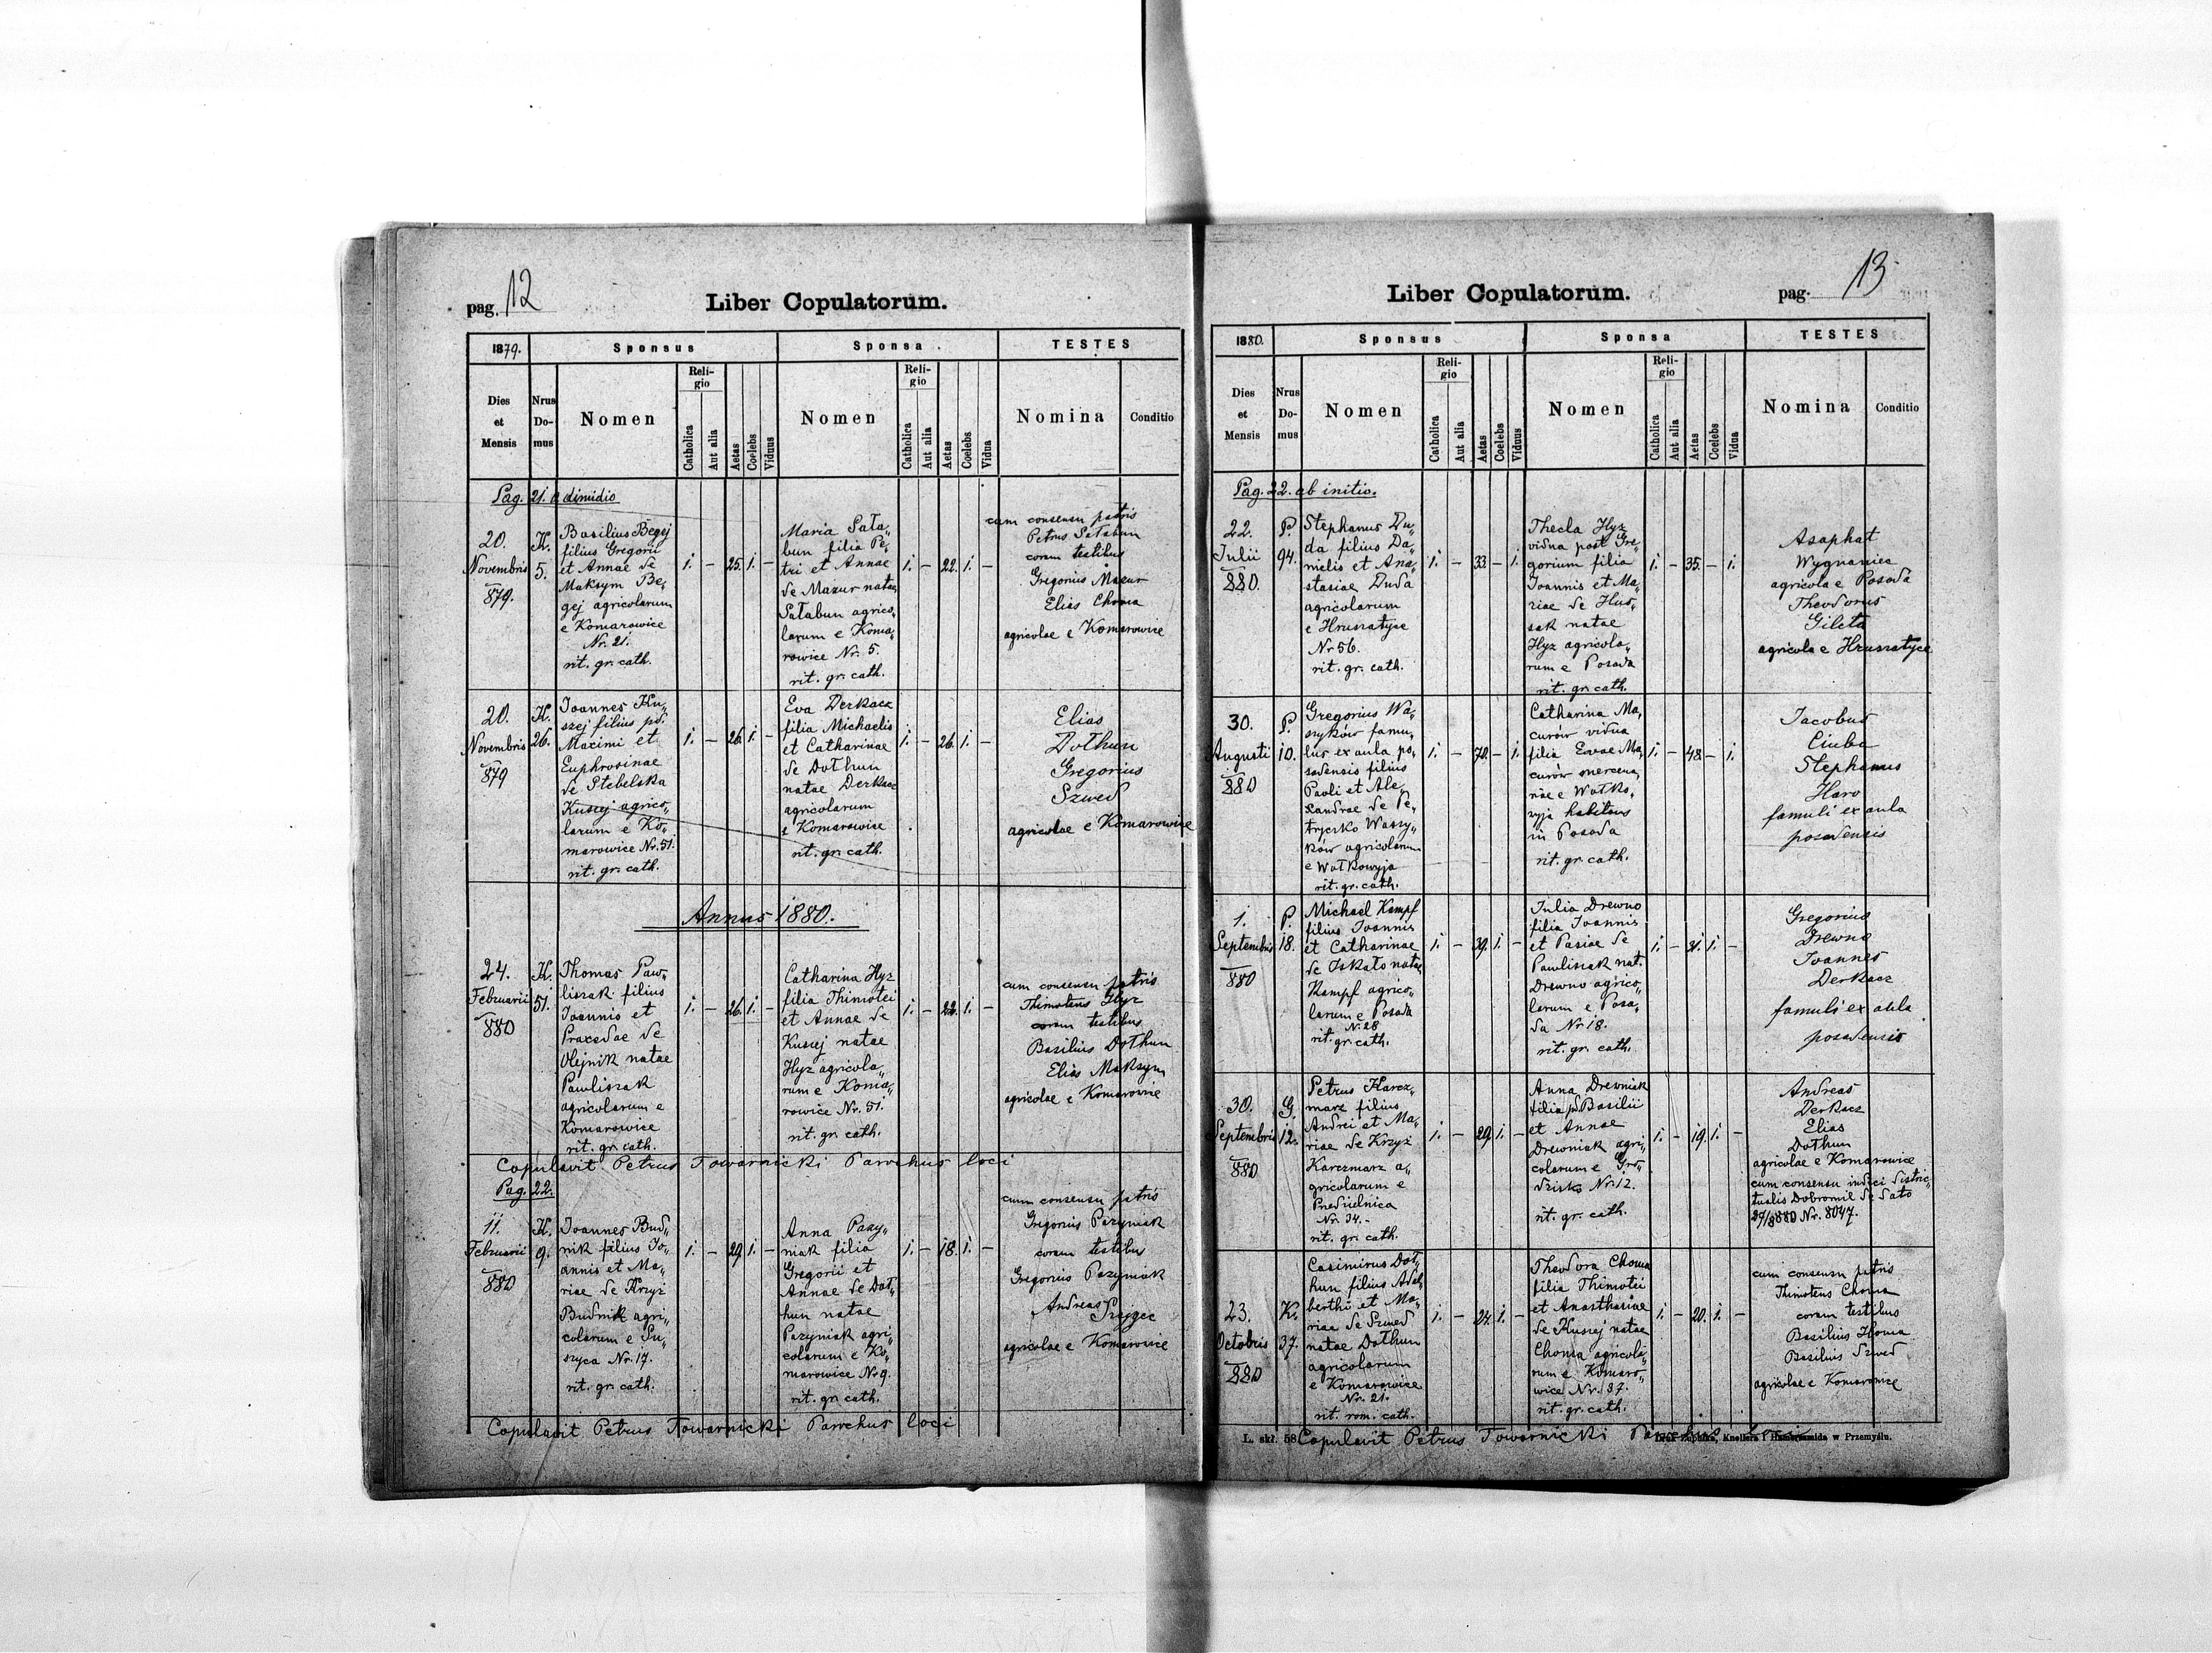 pag. 12
Liber Copulatorum.
1879.
Sponsus
Sponsa
TESTES
Dies et Mensis
Nrus Domus
Nomen
Religio
Catholica
Aut alia
Aetas
Coelebs
Viduus
Nomen
Religio
Catholica
Aut alia
Aetas
Coelebs
Vidua
Nomina
Conditio
Pag. 21. a dimidio
20.
Novembris
879.
K.
5.
Basilius Begej
filius Gregorii
et Annae de
Maksym Be„
gej agricolarum
e Komarowice
Nr. 21.
rit. gr. cath.
1. — 25. 1. —
Maria Sała„
bun filia Pe„
tri et Annae
de Mazur natae
Sałabun agrico„
larum e Koma„
rowice Nr. 5.
rit. gr. cath.
1. — 22. 1. —
cum consensu patris
Petrus Sałabun
coram testibus
Gregorius Mazur
Elias Choma
agricolae e Komarowice
20.
Novembris
879
K.
26.
Joannes Ku„
szej filius pd.
Maximi et
Euphrosinae
de Stebelska
Kusiej agrico„
larum e Ko„
marowice Nr. 51.
rit. gr. cath.
1. — 26. 1. —
Eva Derkacz
filia Michaelis
et Catharinae
de Dołhun
natae Derkacz
agricolarum
e Komarowice
rit. gr. cath.
1. — 26. 1. —
Elias
Dołhun
Gregorius
Szwed
agricolae e Komarowice
Annus 1880.
24.
Februarii
880
K.
51.
Thomas Paw„
liszak filius
Joannis et
Praxedae de
Olejnik natae
Pawliszak
agricolarum e
Komarowice
rit. gr. cath.
1. — 26. 1. —
Catharina Hyz
filia Thimotei
et Annae de
Kusiej natae
Hyz agricola„
rum e Koma„
rowice Nr. 51.
rit. gr. cath.
1. — 22. 1. —
cum consensu patris
Thimoteus Hyz
coram testibus
Basilius Dołhun
Elias Maksym
agricolae e Komarowice
Copulavit Petrus Towarnicki Parochus loci
Pag. 22.
11.
Februarii
880
K.
9.
Joannes Bud„
nik filius Jo„
annis et Ma„
riae de Krzyż
Budnik agri„
colarum e Su„
szyca Nr. 17.
rit. gr. cath.
1. — 29. 1. —
Anna Pazy„
niak filia
Gregorii et
Annae de Doł„
hun natae
Pazyniak agri„
colarum e Ko„
marowice Nr. 9.
rit. gr. cath.
1. — 18. 1. —
cum consensu patris
Gregorius Pazyniak
coram testibus
Gregorius Pazyniak
Andreas
agricolae e Komarowice
Copulavit Petrus Towarnicki Parochus loci
Liber Copulatorum.
pag. 13
1880.
Sponsus
Sponsa
TESTES
Dies et Mensis
Nrus Domus
Nomen
Religio
Catholica
Aut alia
Aetas
Coelebs
Viduus
Nomen
Religio
Catholica
Aut alia
Aetas
Coelebs
Vidua
Nomina
Conditio
Pag. 22. ab initio.
22.
Julii
880.
P.
94.
Stephanus Du„
da filius Da„
nielis et Ana„
stasiae Duda
agricolarum
e Hruszatyce
Nr 56.
rit. gr. cath.
1. — 33 — 1.
Thecla Hyz
vidua post Gre„
gorium filia
Joannis et Ma„
riae de Hus„
sak natae
Hyz agricola„
rum e Posada
rit. gr. cath.
1. — 35. — 1.
Asaphat
Wygnaniec
agricola e Posada
Theodorus
Gileta
agricola e Hruszatyce
30.
Augusti
880
P.
10.
Gregorius Wa„
szyków famu„
lus ex aula po„
sadensis filius
Pauli et Ale„
xandrae de Pe„
tryczko Waszy„
ków agricolarum
e Wołkowyja
rit. gr. cath.
1. — 70. — 1.
Catharina Ma„
curów vidua
filia Evae Ma„
curów mercena„
riae e Wołko„
wyja habitans
in Posada
rit. gr. cath.
1. — 48 — 1.
Jacobus
Ciuba
Stephanus
Haro
famuli ex aula
posadensis
1.
Septembris
880
P.
18.
Michael Kampf
filius Joannis
et Catharinae
de Iskało natae
Kampf agrico„
larum e Posada
Nr. 28
rit. gr. cath.
1. — 39. 1. —
Julia Drewno
filia Joannis
et Pasiae de
Pawliszak nat.
Drewno agrico„
larum e Posa„
da Nr 18.
rit. gr. cath.
1. — 31. 1. —
Gregorius
Drewno
Joannes
Derkacz
famuli ex aula
posadensis
30.
Septembris
880
G.
12.
Petrus Karcz„
marz filius
Andrei et Ma„
riae de Krzyż
Karczmarz a„
gricolarum e
Przedzielnica
Nr. 34.
rit. gr. cath.
1. — 29. 1. —
Anna Drewniak
filia pd Basilii
et Annae
Drewniak agri„
colarum e Gro„
dzisko Nr. 12.
rit. gr. cath.
1. — 19. 1. —
Andreas
Derkacz
Elias
Dołhun
agricolae e Komarowice
cum consensu indici distric„
tualis Dobromil de dato
27/8 880 Nr. 8047.
23.
Octobris
880
K.
37.
Casimirus Doł„
hun filius Adal„
berthi et Ma„
riae de Szwed
natae Dołhun
agricolarum
e Komarowice
Nr. 21.
rit. rom. cath.
1. — 24. 1. —
Theodora Choma
filia Thimotei
et Anasthasiae
de Kusiej natae
Choma agricola„
rum e Komaro„
wice Nr. 37.
rit. gr. cath.
1. — 20. 1. —
cum consensu patris
Thimoteus Choma
coram testibus
Basilius Homa
Basilius Szwed
agricolae e Komarowice
L. skł. 58
Copulavit Petrus Towarnicki Parochus loci
Knollera i w Przemyślu.